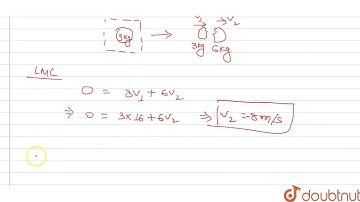 9kg → V₁ → V₂
3kg 6kg
LMC
0 = 3V₁ + 6V₂
⇒ 0 = 3×16 + 6V₂ ⇒ V₂ = -8 m/s
doubtnut